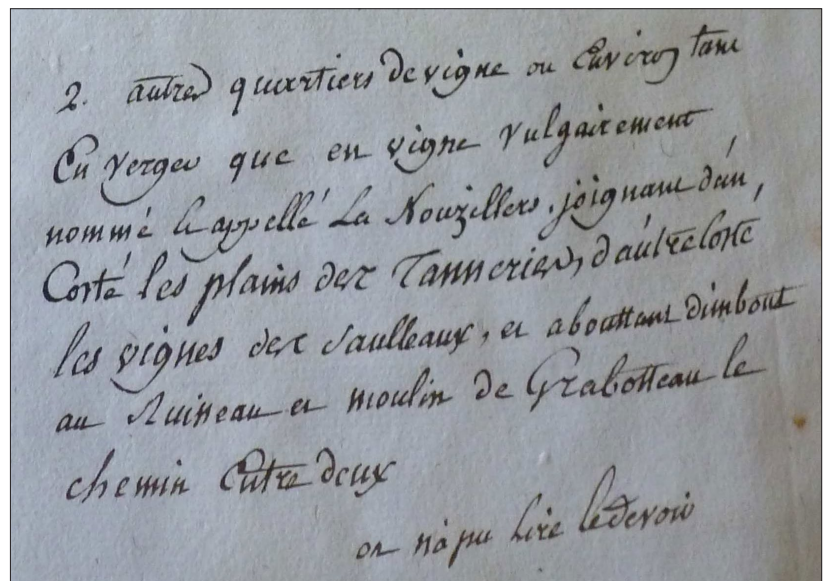 2. autres quartiers de vigne ou Environ tant
En verger que en vigne vulgairement
nommé et appellé La Nouzillers. joignant d'un
Costé les plains des Tanneries, d'autre Costé
les vignes des Saulleaux, et abouttant d'un bout
au Ruisseau et moulin de Grabotteau le
chemin Entre deux
on n'a pu Lire le devoir